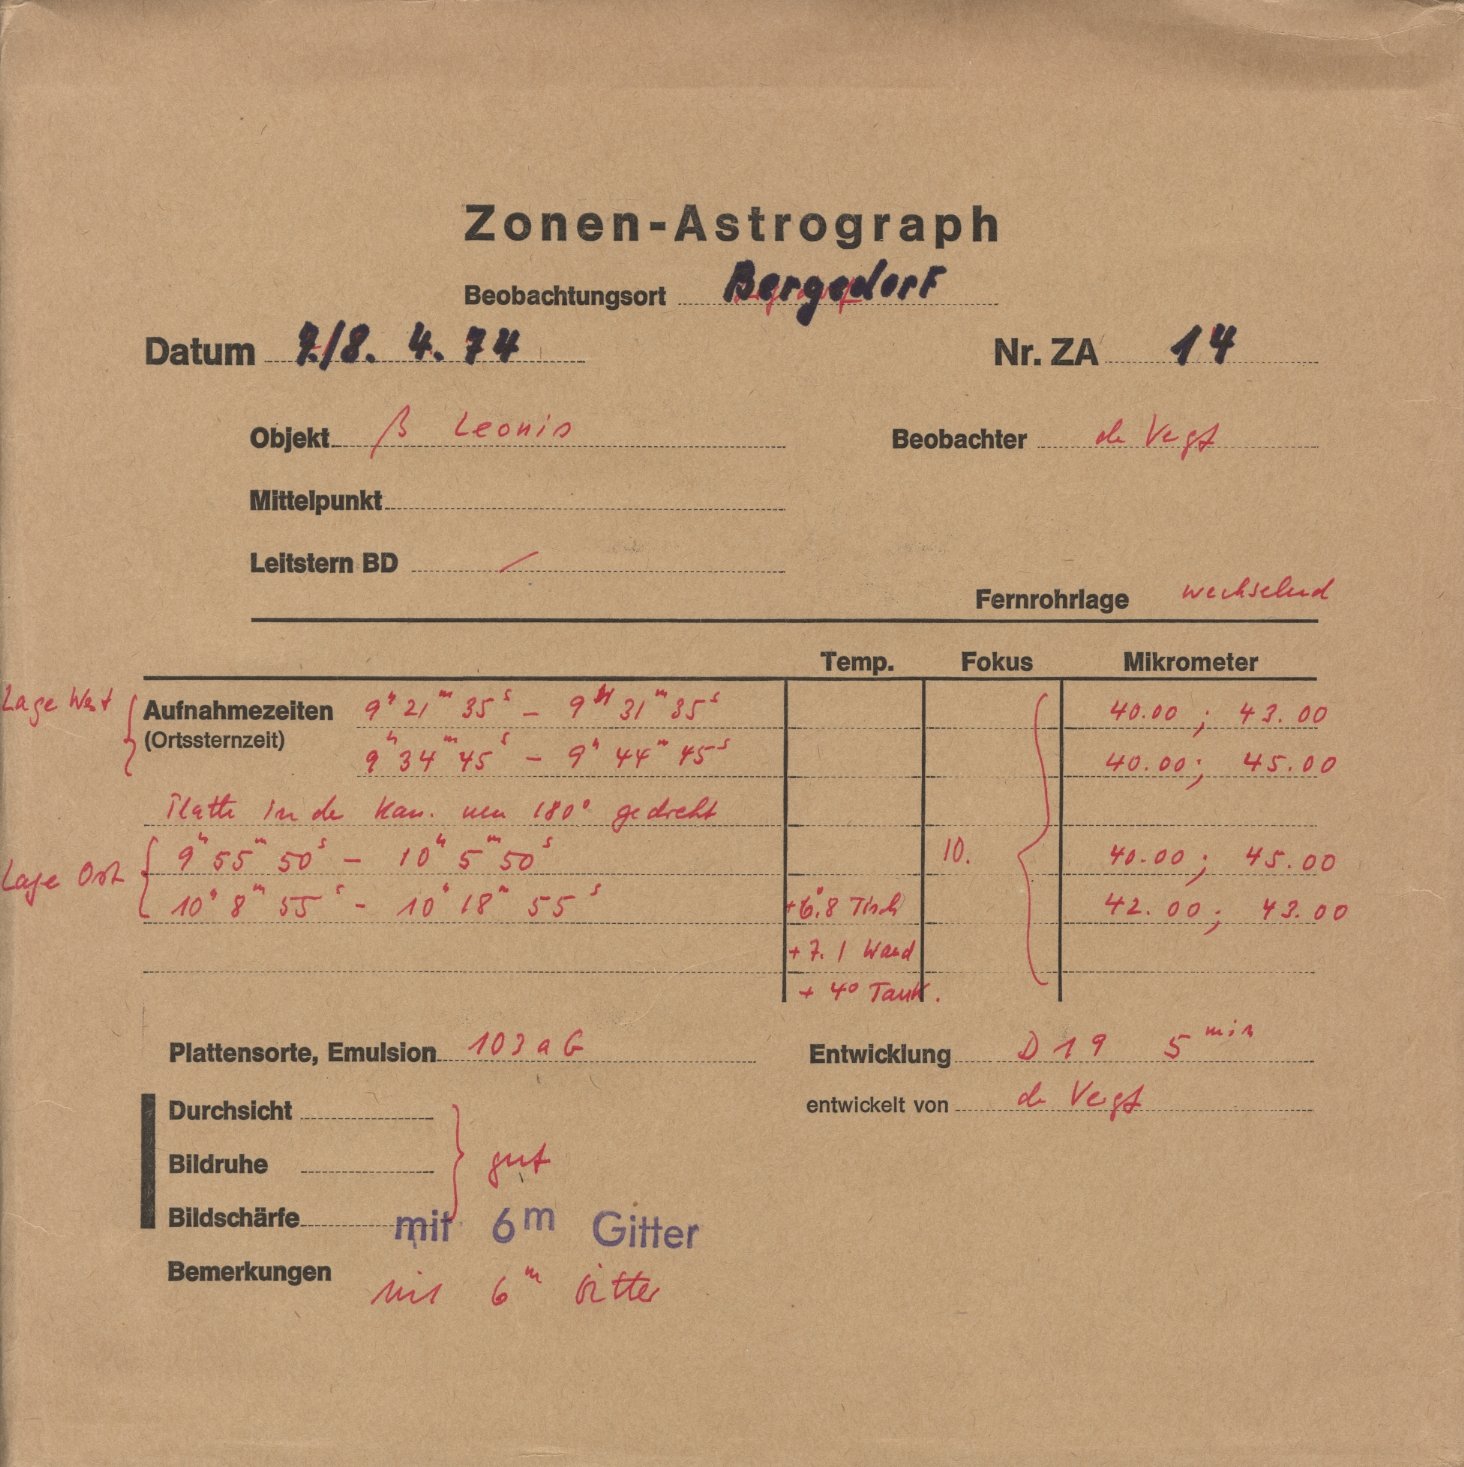 Zonen-Astrograph
Beobachtungsort Bergedorf
Datum 7./8. 4. 74 Nr. ZA 14
Objekt β Leonis Beobachter de Vegt
Mittelpunkt
Leitstern BD /
Fernrohrlage wechselnd
Temp. Fokus Mikrometer
Lage West { Aufnahmezeiten 9h 21m 35s – 9h 31m 35s 40.00 ; 43.00
(Ortssternzeit) 9h 34m 45s – 9h 44m 45s 40.00 ; 45.00
Platte in der Kass. um 180° gedreht
Lage Ost { 9h 55m 50s – 10h 5m 50s 10. 40.00 ; 45.00
10h 8m 55s – 10h 18m 55s +6°.8 Tisch 42.00 ; 43.00
+7.1 Wand
+ 4° Tank.
Plattensorte, Emulsion 103aG Entwicklung D19 5min
Durchsicht entwickelt von de Vegt
Bildruhe } gut
Bildschärfe mit 6m Gitter
Bemerkungen mit 6m Gitter